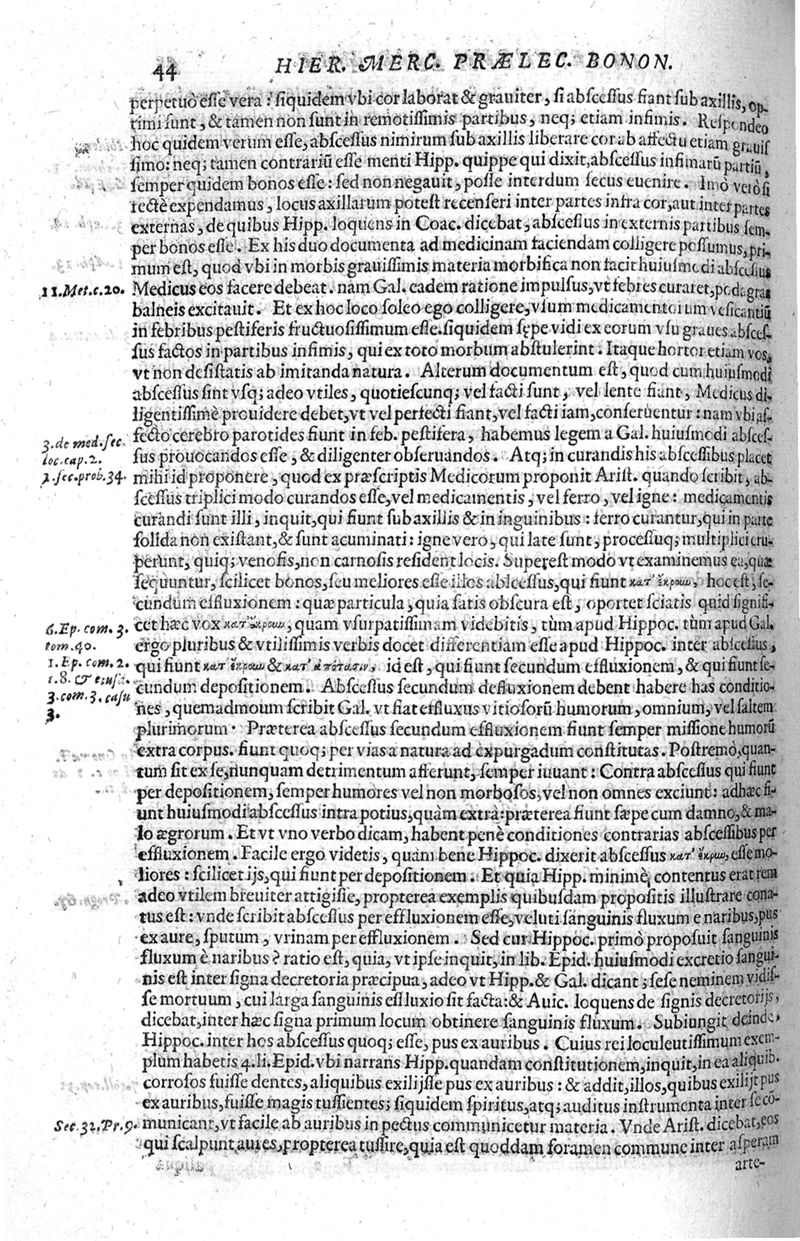 44
HIER. MERC. PRÆLEC. BONON.
perpetuò esse vera? siquidem vbi cor laborat & grauiter, si abscessus fiant sub axillis, op-
timi sunt, & tamen non sunt in remotissimis partibus, neq; etiam infimis. Respondeo
hoc quidem verum esse, abscessus nimirum sub axillis liberare cor ab affectu etiam grauis
simo: neq; tamen contrariū esse menti Hipp. quippe qui dixit, abscessus infimarū partiū,
semper quidem bonos esse: sed non negauit, posse interdum secus euenire. Imò verò si
rectè expendamus, locus axillarum potest recenseri inter partes infra cor, aut inter partes
externas, de quibus Hipp. loquens in Coac. dicebat, abscessus in externis partibus sem-
per bonos esse. Ex his duo documenta ad medicinam faciendam colligere possumus, pri-
mum est, quod vbi in morbis grauissimis materia morbifica non facit huiusmodi abscessus
11. Met. c. 20.
Medicus eos facere debeat. nam Gal. eadem ratione impulsus, vt febres curaret, podagras
balneis excitauit. Et ex hoc loco soleo ego colligere, vsum medicamentorum vesicantiū
in febribus pestiferis fructuosissimum esse. siquidem sępe vidi ex eorum vsu graues absces-
sus factos in partibus infimis, qui ex toto morbum abstulerint. Itaque hortor etiam vos,
vt non desistatis ab imitanda natura. Alterum documentum est, quod cum huiusmodi
abscessus sint vsq; adeo vtiles, quotiescunq; vel facti sunt, vel lente fiant, Medicus di-
ligentissimè prouidere debet, vt vel perfecti fiant, vel facti iam, conseruentur: nam vbi af-
3. de med. sec.
loc. cap. 2.
fecto cerebro parotides fiunt in feb. pestifera, habemus legem a Gal. huiusmodi absces-
sus prouocandos esse, & diligenter obseruandos. Atq; in curandis his abscessibus placet
1. sec. prob. 34.
mihi id proponere, quod ex præscriptis Medicorum proponit Arist. quando scribit, ab-
scessus triplici modo curandos esse, vel medicamentis, vel ferro, vel igne: medicamentis
curandi sunt illi, inquit, qui fiunt sub axillis & in inguinibus: ferro curantur, qui in parte
solida non existant, & sunt acuminati: igne vero, qui late sunt, processuq; multiplici eru-
perunt, quiq; venosis, non carnosis resident locis. Superest modo vt examinemus ea, quæ
sequuntur, scilicet bonos, seu meliores esse illos abscessus, qui fiunt κατ' ἔκρουν, hoc est, se-
cundum effluxionem: quæ particula, quia satis obscura est, oportet sciatis quid signifi-
6. Ep. com. 3.
tom. 40.
cet hæc vox κατ' ἔκρουν, quam vsurpatissimam videbitis, tùm apud Hippoc. tùm apud Gal.
ergo pluribus & vtilissimis verbis docet differentiam esse apud Hippoc. inter abscessus,
1. Ep. com. 2.
qui fiunt κατ' ἔκρουν & κατ' ἀπόστασιν, id est, qui fiunt secundum effluxionem, & qui fiunt se-
1. 8. & eiusd.
3. com. 3. casu
3.
cundum depositionem. Abscessus secundum defluxionem debent habere has conditio-
nes, quemadmoum scribit Gal. vt fiat effluxus vitiosorū humorum, omnium, vel saltem
plurimorum. Præterea abscessus secundum effluxionem fiunt semper missione humorū
extra corpus. fiunt quoq; per vias a natura ad expurgadum constitutas. Postremò, quan-
tum sit ex se, nunquam detrimentum afferunt, semper iuuant: Contra abscessus qui fiunt
per depositionem, semper humores vel non morbosos, vel non omnes exciunt: adhæc fi-
unt huiusmodi abscessus intra potius, quàm extrà: præterea fiunt sæpe cum damno, & ma-
lo ægrorum. Et vt vno verbo dicam, habent penè conditiones contrarias abscessibus per
effluxionem. Facile ergo videtis, quàm bene Hippoc. dixerit abscessus κατ' ἔκρουν, esse me-
liores: scilicet ijs, qui fiunt per depositionem. Et quia Hipp. minimè contentus erat rem
adeo vtilem breuiter attigisse, propterea exemplis quibusdam propositis illustrare cona-
tus est: vnde scribit abscessus per effluxionem esse, veluti sanguinis fluxum e naribus, pus
ex aure, sputum, vrinam per effluxionem. Sed cur Hippoc. primò proposuit sanguinis
fluxum è naribus? ratio est, quia, vt ipse inquit, in lib. Epid. huiusmodi excretio sangui-
nis est inter signa decretoria præcipua, adeo vt Hipp. & Gal. dicant; sese neminem vidis-
se mortuum, cui larga sanguinis effluxio sit facta: & Auic. loquens de signis decretorijs,
dicebat, inter hæc signa primum locum obtinere sanguinis fluxum. Subiungit deinde
Hippoc. inter hos abscessus quoq; esse, pus ex auribus. Cuius rei loculeutissimum exem-
plum habetis 4. li. Epid. vbi narrans Hipp. quandam constitutionem, inquit, in ea aliquib.
corrosos fuisse dentes, aliquibus exilijsse pus ex auribus: & addit, illos, quibus exilijt pus
ex auribus, fuisse magis tussientes; siquidem spiritus, atq; auditus instrumenta inter se co-
Sec. 32. Pr. 9.
municant, vt facile ab auribus in pectus communicetur materia. Vnde Arist. dicebat, eos
qui scalpunt aures, propterea tussire, quia est quoddam foramen commune inter asperam
arte-